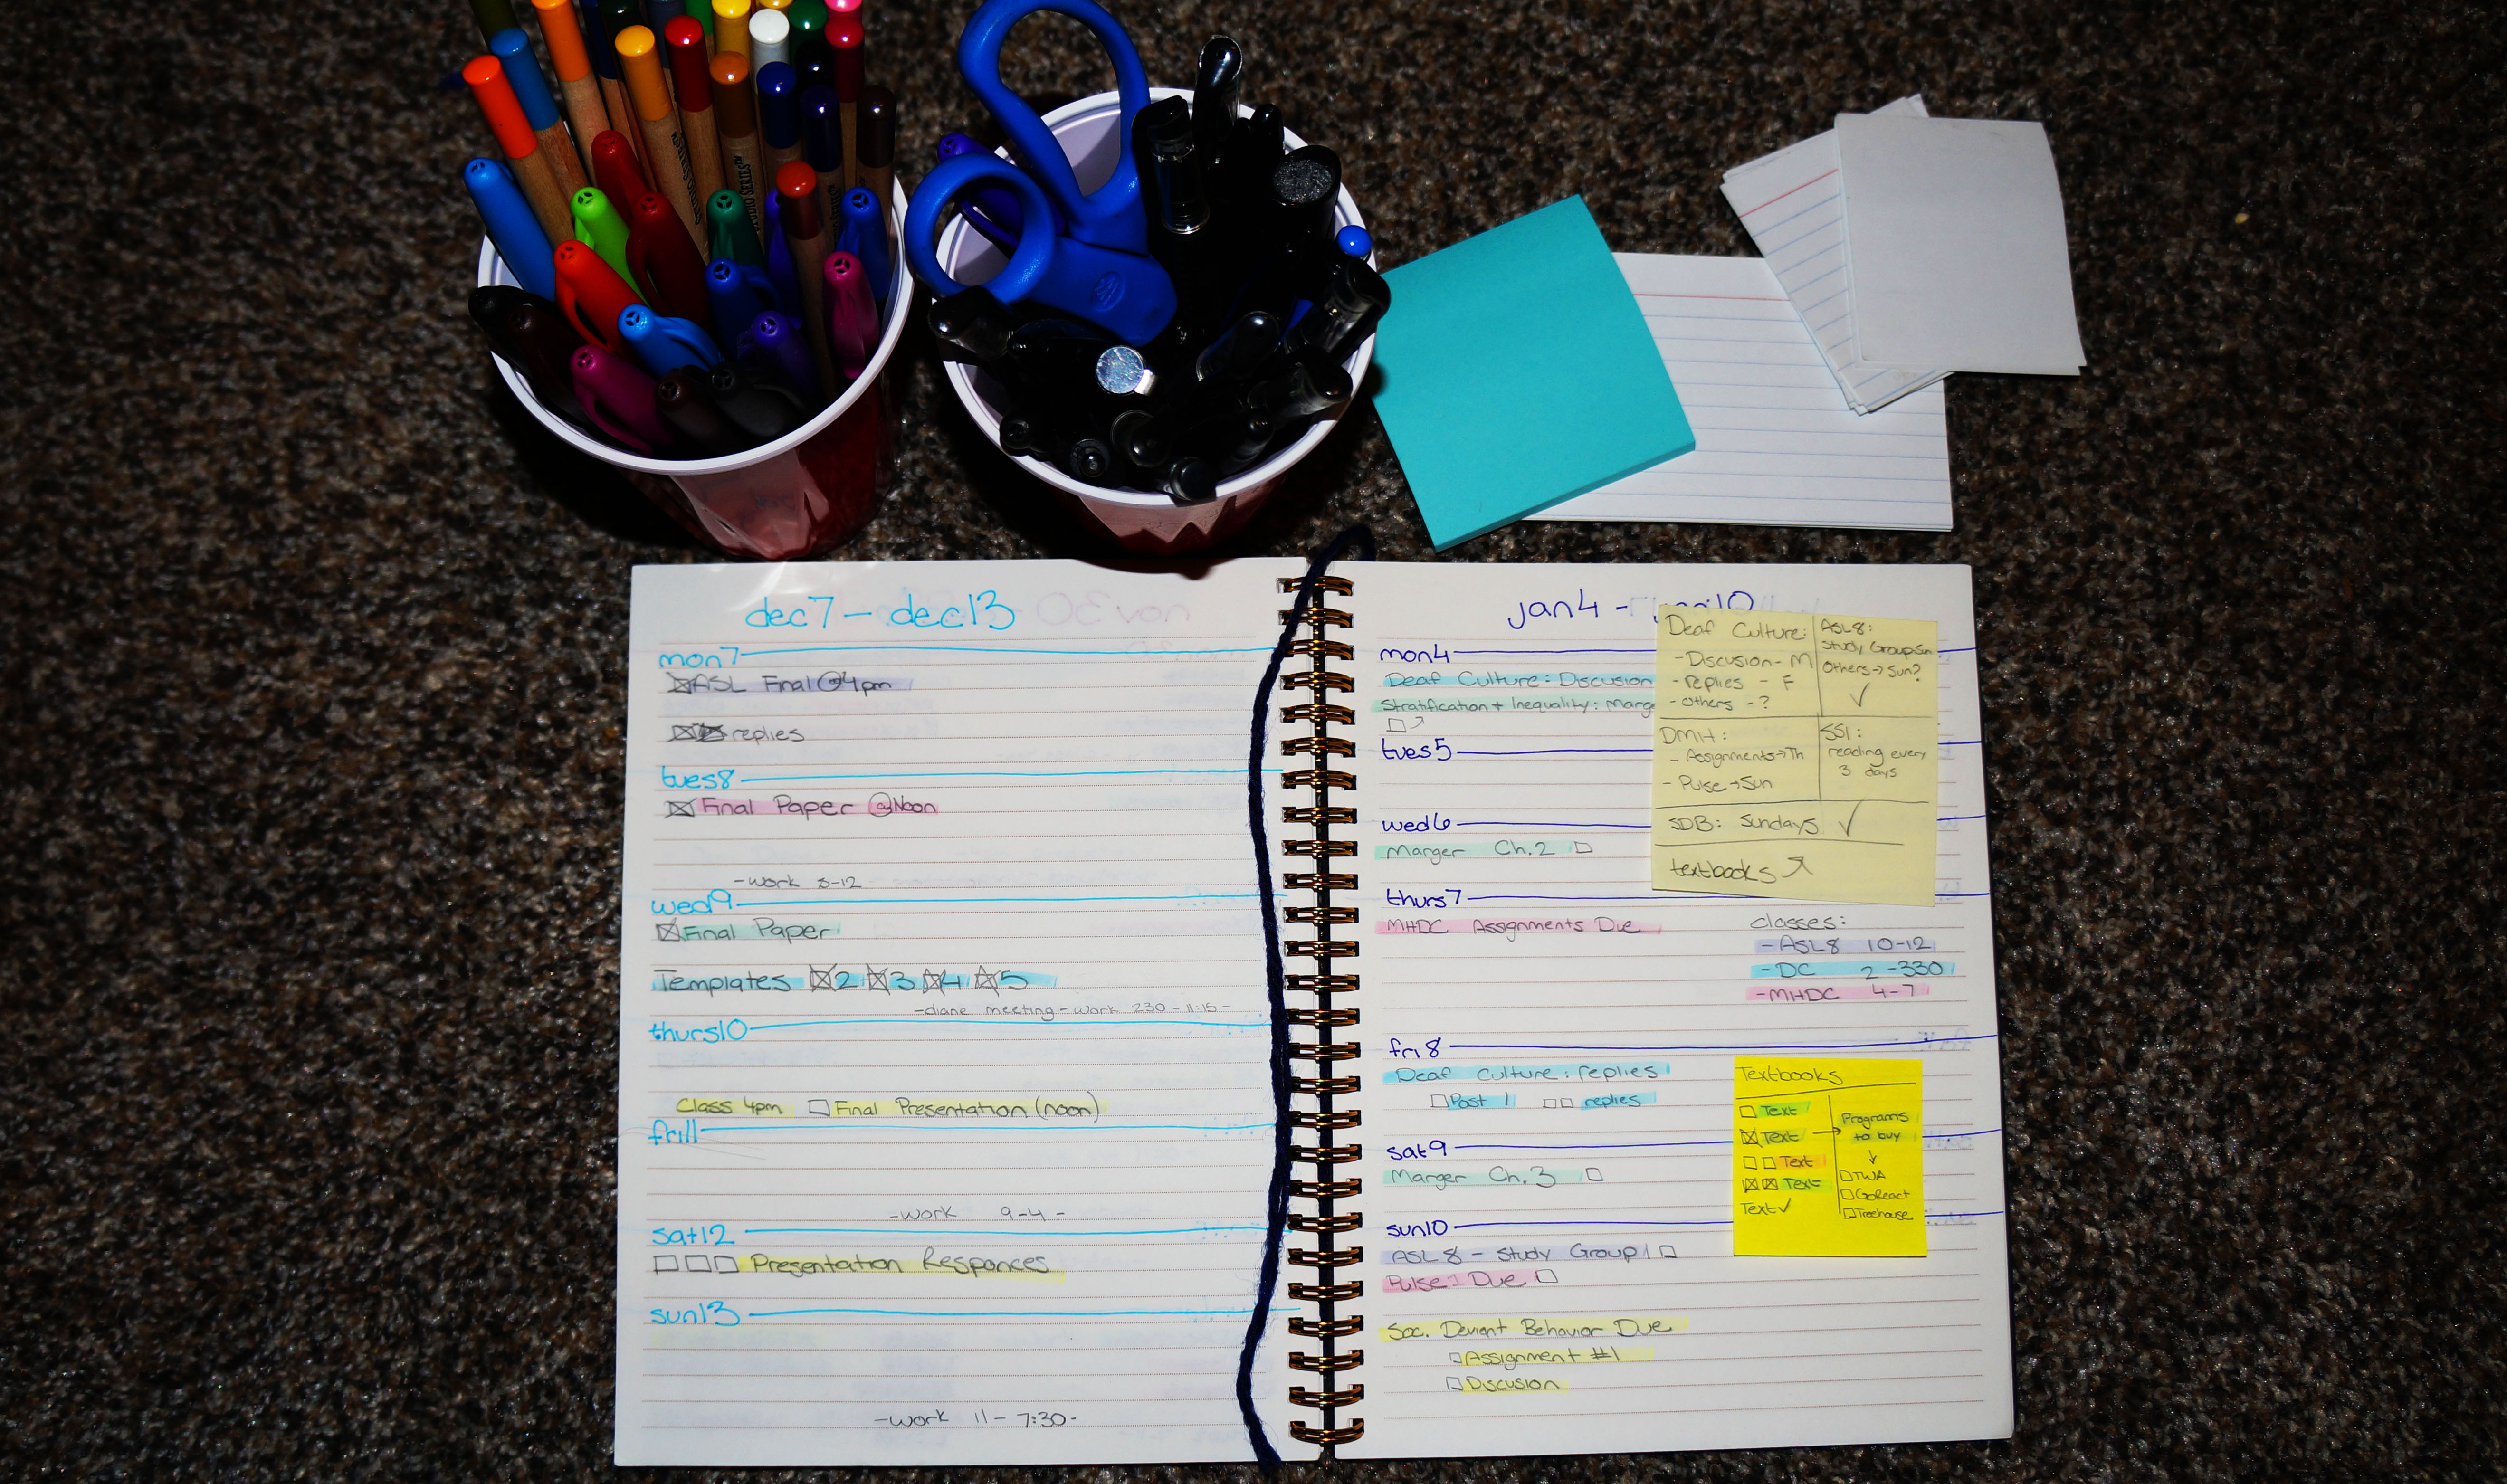 dec7 - dec13
mon7
ASL Final @4pm
replies
tues8
Final Paper @Noon
-work 8-12
wed9
Final Paper
Templates 2 3 4 5
-diane meeting - work 230 - 11:15 -
thurs10
Class 4pm Final Presentation (noon)
fri11
-work 9-4 -
sat12
Presentation Responces
sun13
-work 11 - 7:30-
jan4 -
mon4
Deaf Culture: Discusion
Stratification + Inequality:
tues5
wed6
Marger Ch.2
thurs7
MHDC Assignments Due
classes:
-ASL8 10-12
-DC 2-330
-MHDC 4-7
fri8
Deaf Culture: replies
Post 1 replies
sat9
Marger Ch.3
sun10
ASL 8 - Study Group 1
Pulse 1 Due
Soc. Devient Behavior Due
Assignment #1
Discusion
Deaf Culture:
-Discusion- M
-replies - F
-others -?
ASL8:
Study Group:Sn
Others→Sun?
✓
DMH:
- Assignments→Th
- Pulse→Sun
SSI:
reading every
3 days
SDB: Sundays ✓
textbooks
Textbooks
Text
Text
Text
Text
Text✓
Programs
to buy
TWA
GoReact
Treehouse
STUDIO SERIES™